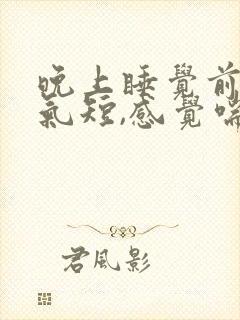 晚上睡覺前
氣短,感覺喘
君風影